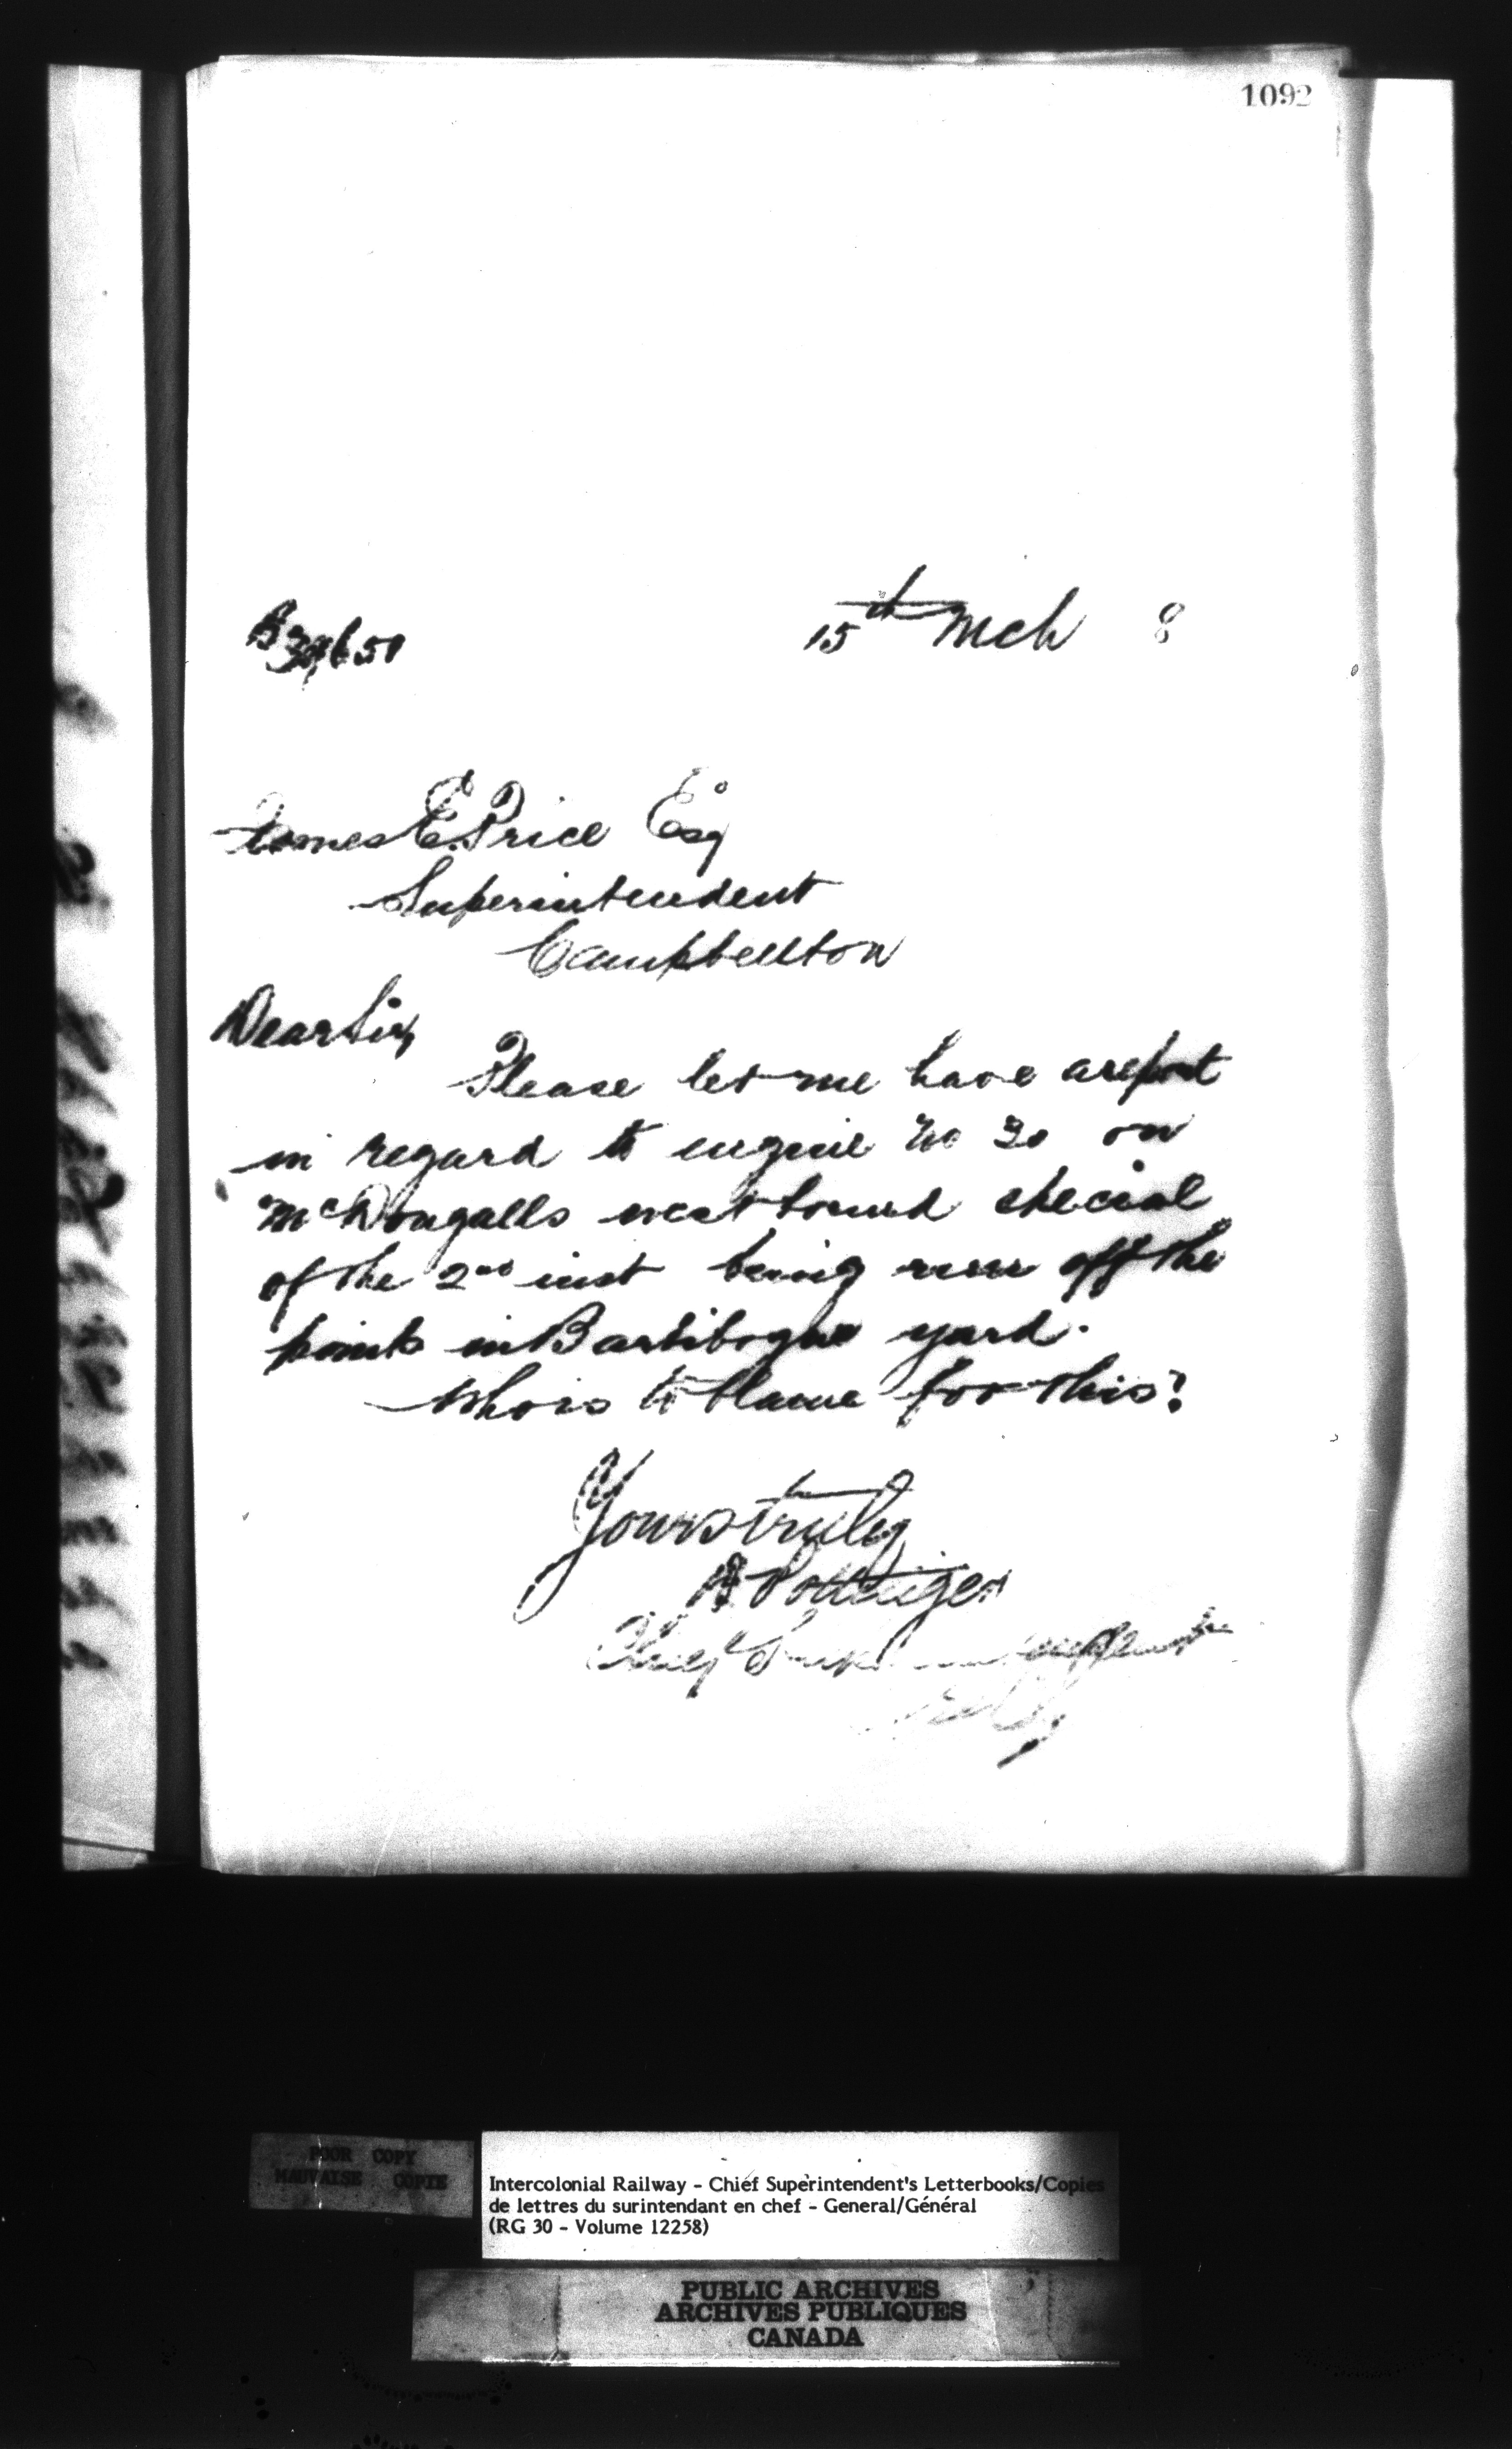 1092
15th Mch 8
James E. Price Esq
Superintendent
Campbellton
Dear Sir,
Please let me have a report
in regard to engine No 30 on
McDougalls west bound special
of the 2nd inst being run off the
points in Bartibogue yard.
Who is to blame for this?
Yours truly
D Pottinger
Chief Supt
POOR COPY
MAUVAISE COPIE
Intercolonial Railway - Chief Superintendent's Letterbooks/Copies
de lettres du surintendant en chef - General/Général
(RG 30 - Volume 12258)
PUBLIC ARCHIVES
ARCHIVES PUBLIQUES
CANADA